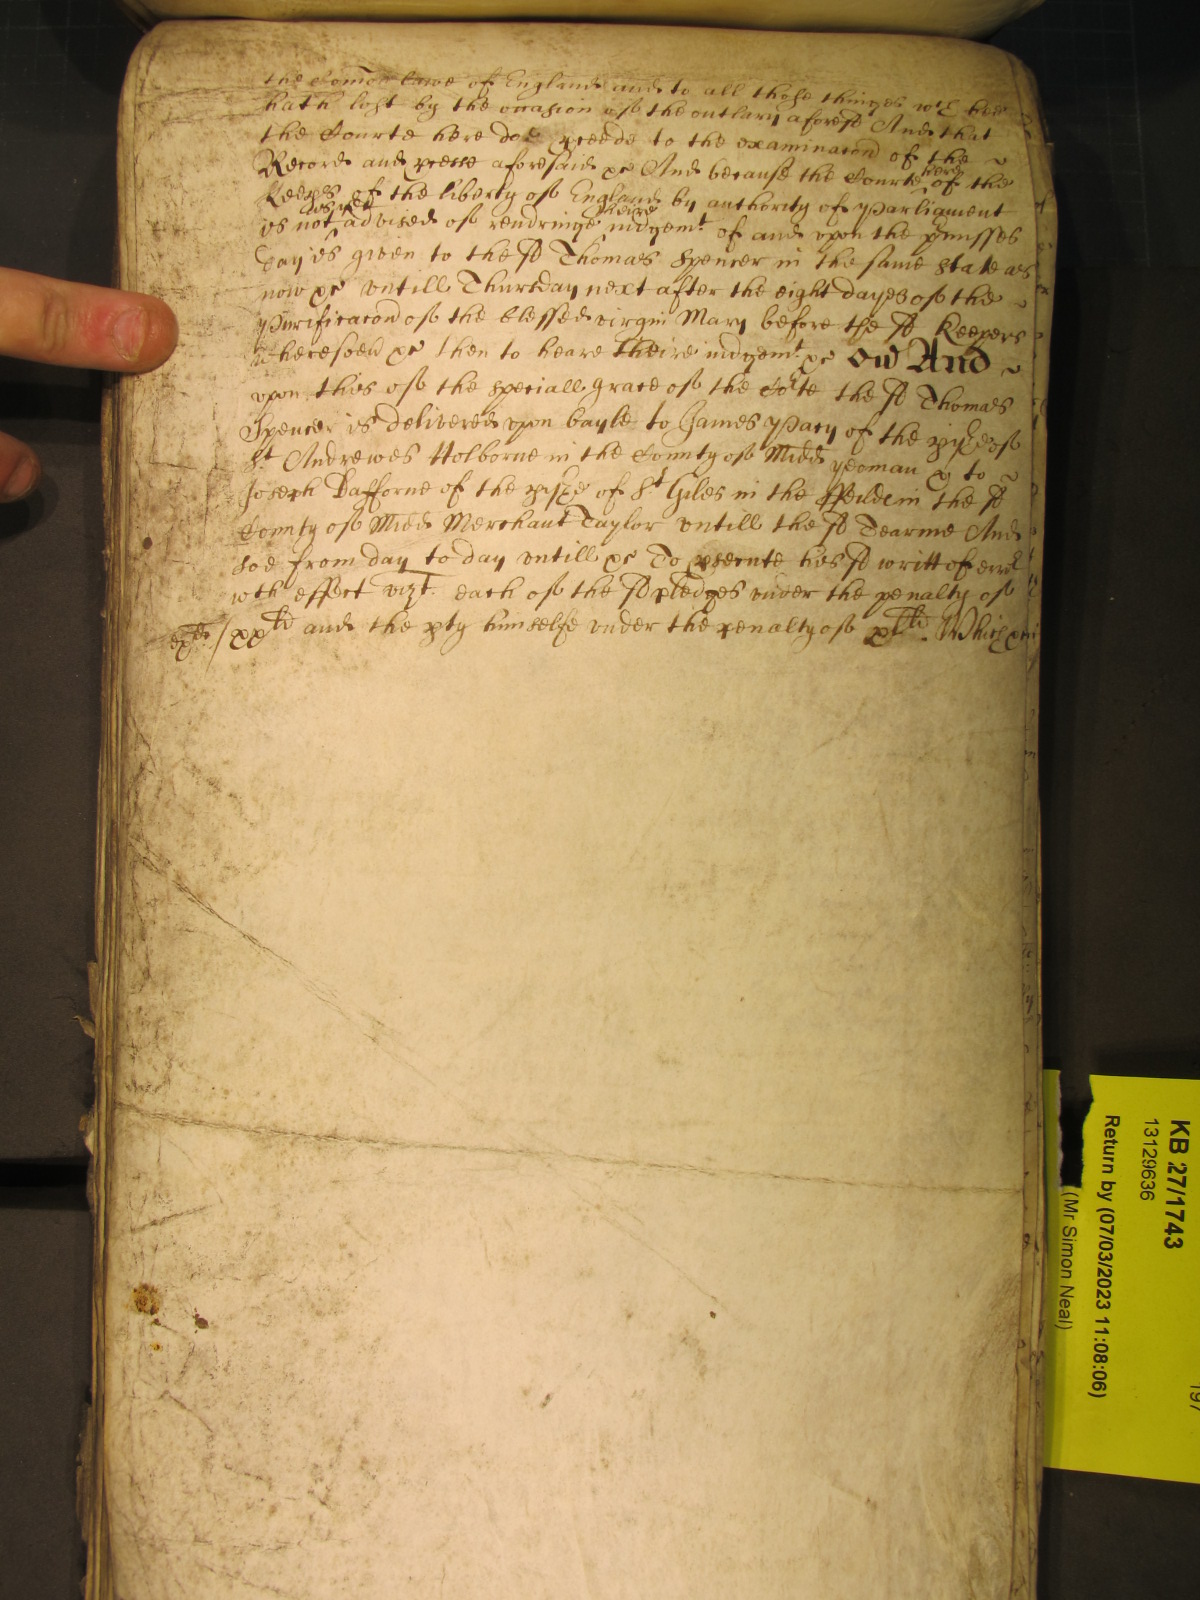 the Comon lawe of England and to all those thinges wch hee
hath lost by the occasion of the outlary aforesd And that
the Courte here doe pceede to the examinacon of the
Record and pcesse aforesaid &c And because the Courte here of the
Keeps of the liberty of England by authority of Parliament
is not as yet advised of rendringe theire iudgemt of and upon the pmisses
day is given to the sd Thomas Spencer in the same state as
now &c untill Thursday next after the eight dayes of the
Purificacon of the blessed virgin Mary before the sd Keepers
&c then to heare theire iudgemt &c And
upon this of the speciall grace of the Cote the sd Thomas
Spencer is delivered upon bayle to James Pary of the pish of
St Andrewes Holborne in the County of Midd yeoman & to
Joseph Dafforne of the pishe of St Giles in the ffeilds in the sd
County of Midd Merchant Taylor untill the sd Tearme And
soe from day to day untill &c To psecute his sd writt of error
wth effect vizt. each of the sd pledges under the penalty of
xxtd and the pty himselfe under the penalty of xltd. Which
KB 27/1743
13129636
Return by (07/03/2023 11:08:06)
(Mr Simon Neal)
197